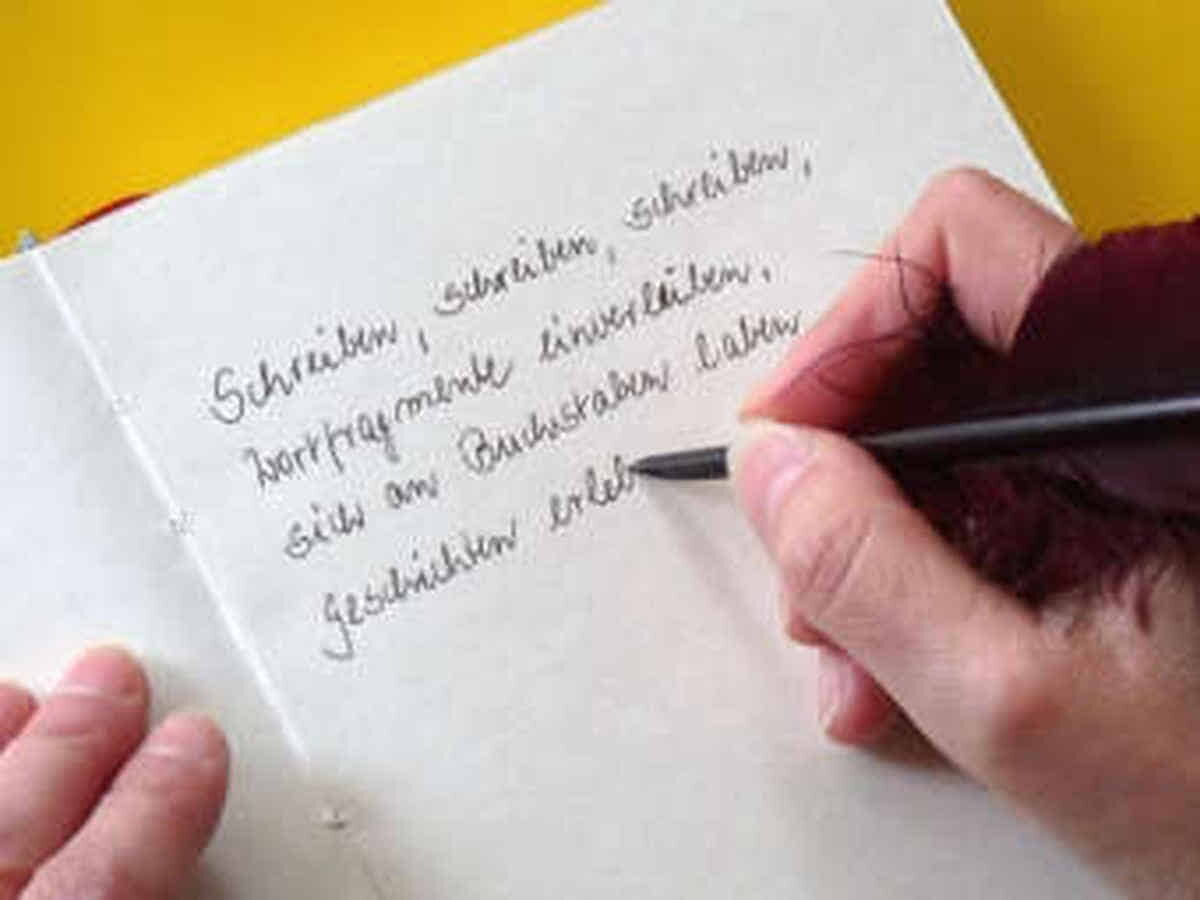 Schreiben, schreiben, schreiben,
Wortfragmente einverleiben.
sich an Buchstaben laben
Geschichten erleb